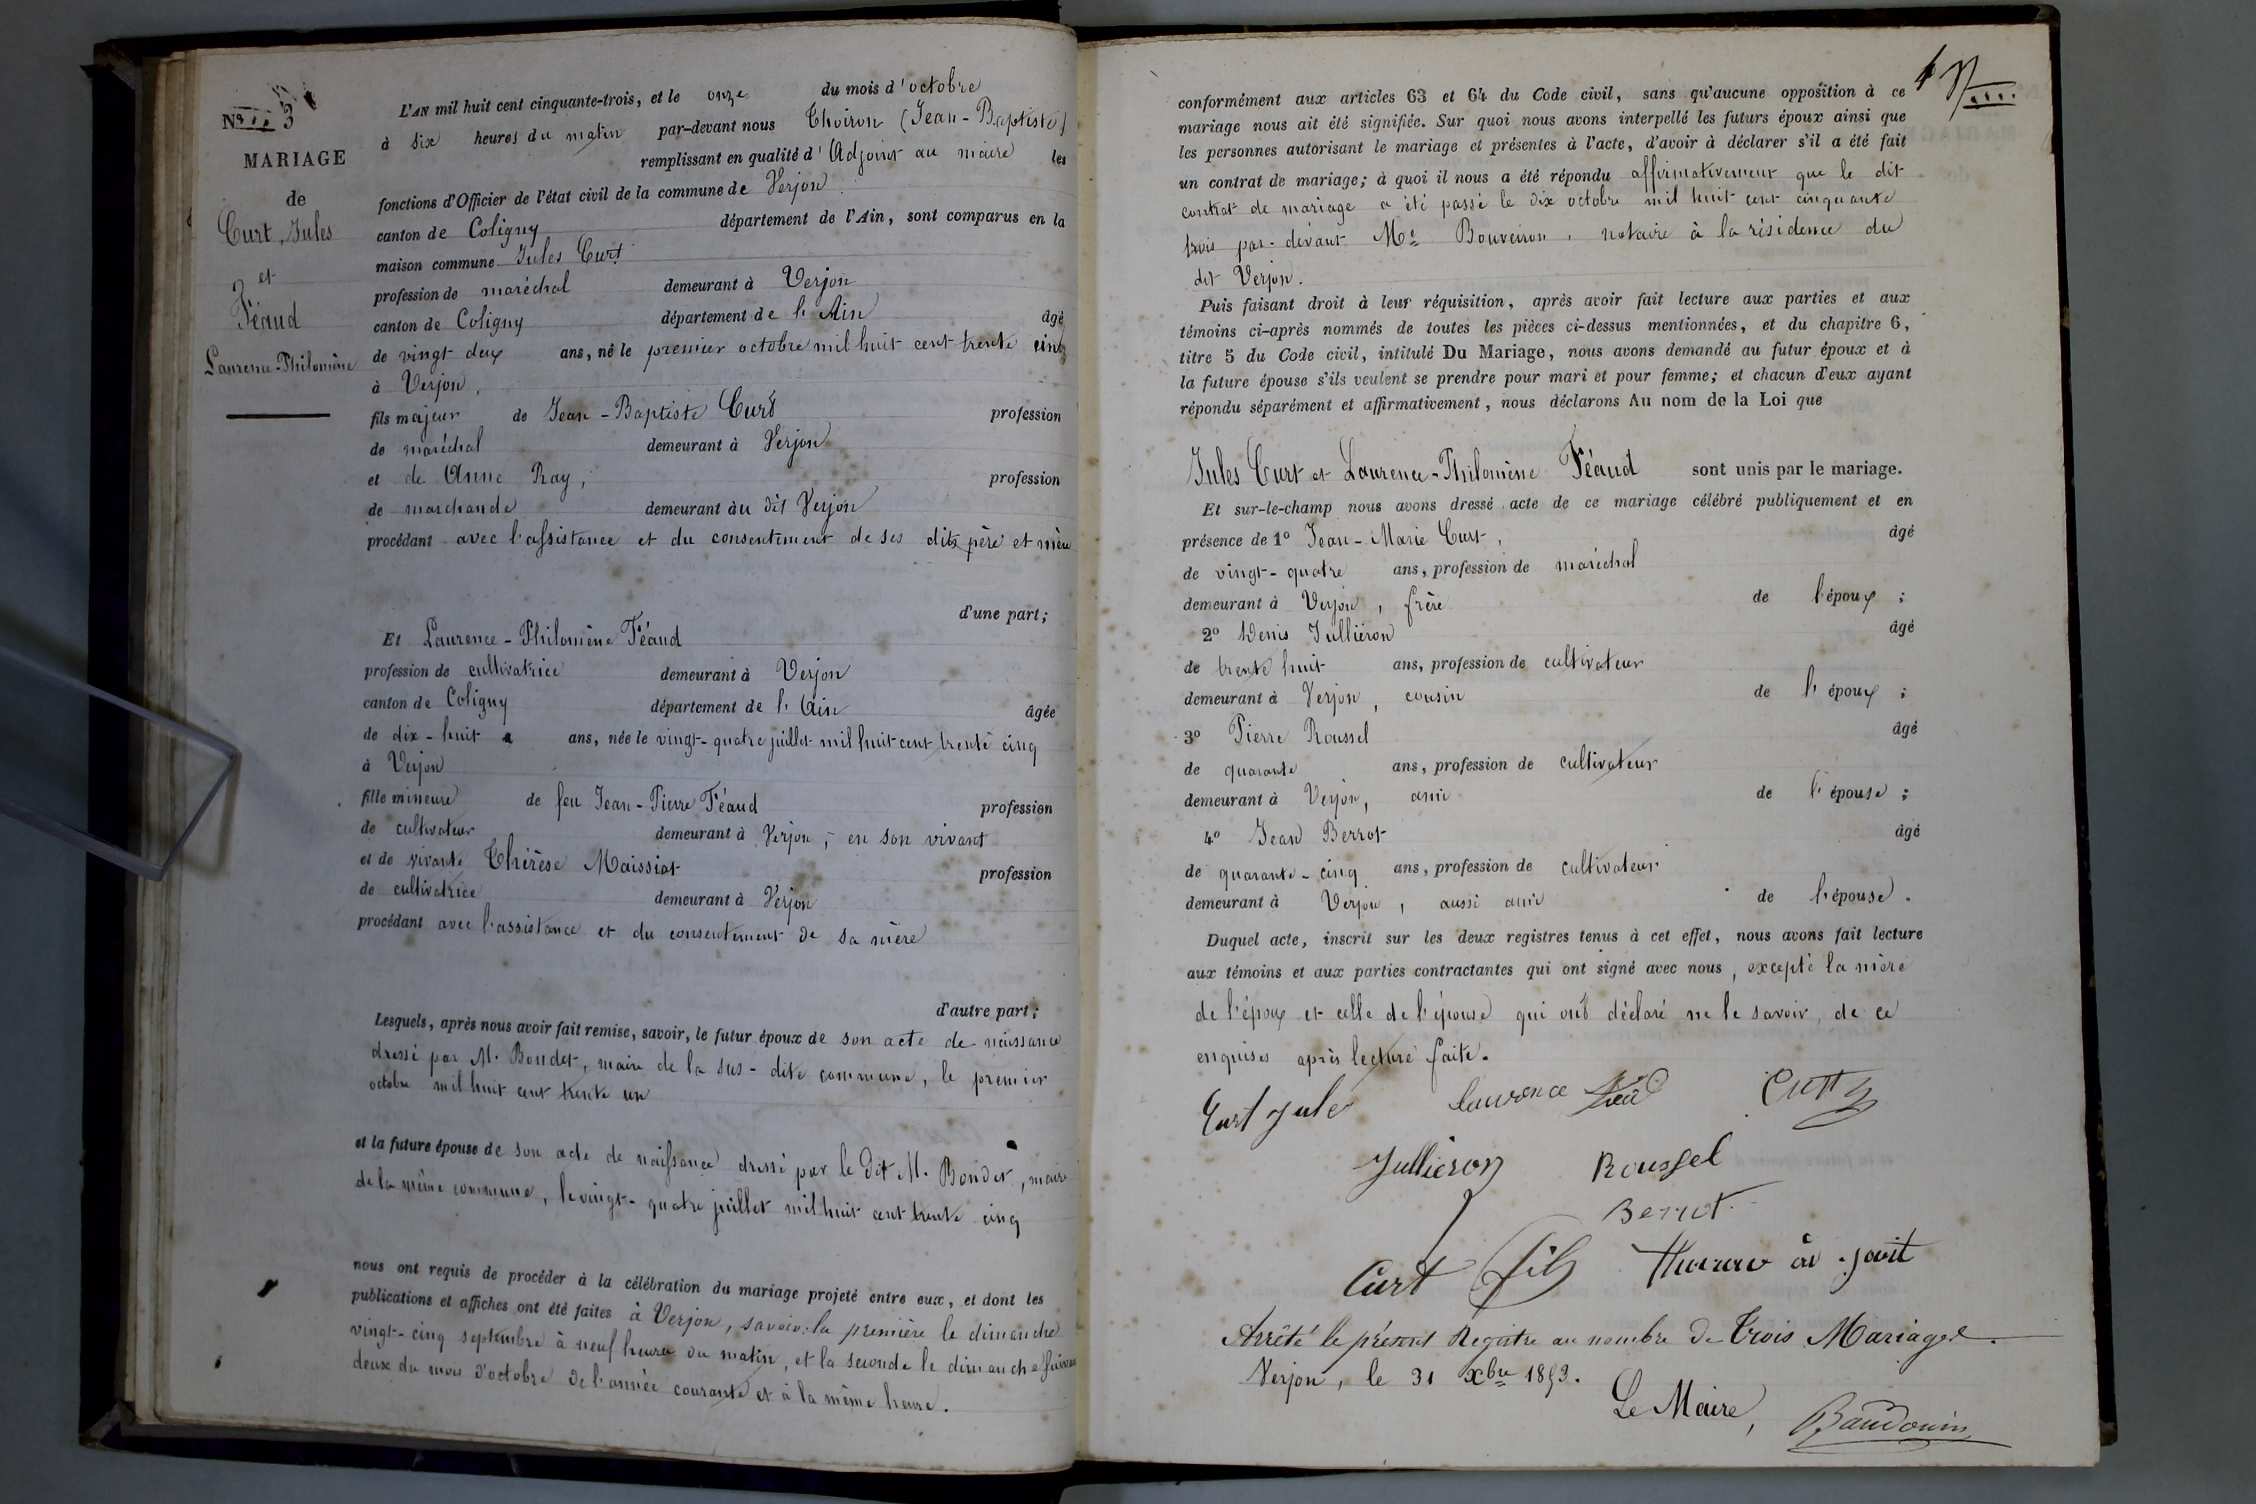 N° 3
MARIAGE
de
Curt, Jules
et
Féaud
Laurence-Philomène
L'AN mil huit cent cinquante-trois, et le onze du mois d'octobre
à six heures du matin par-devant nous Thoiron (Jean-Baptiste)
remplissant en qualité d'Adjoint au maire les
fonctions d'Officier de l'état civil de la commune de Verjon
canton de Coligny département de l'Ain, sont comparus en la
maison commune Jules Curt
profession de maréchal demeurant à Verjon
canton de Coligny département de l'Ain âgé
de vingt deux ans, né le premier octobre mil huit cent trente cinq
à Verjon,
fils majeur de Jean-Baptiste Curt profession
de maréchal demeurant à Verjon
et de Anne Ray, profession
de marchande demeurant àu dit Verjon
procédant avec l'assistance et du consentement de ses dits père et mère
d'une part;
Et Laurence-Philomène Féaud
profession de cultivatrice demeurant à Verjon
canton de Coligny département de l'Ain âgée
de dix-huit ans, née le vingt-quatre juillet mil huit cent trente cinq
à Verjon
fille mineure de feu Jean-Pierre Féaud profession
de cultivateur demeurant à Verjon, en son vivant
et de vivante Thérèse Maissiat profession
de cultivatrice demeurant à Verjon
procédant avec l'assistance et du consentement de sa mère
d'autre part;
Lesquels, après nous avoir fait remise, savoir, le futur époux de son acte de naissance
dressé par M. Bondet, maire de la sus-dite commune, le premier
octobre mil huit cent trente un
et la future épouse de son acte de naissance dressé par le dit M. Bondet, maire
de la même commune, le vingt-quatre juillet mil huit cent trente cinq
nous ont requis de procéder à la célébration du mariage projeté entre eux, et dont les
publications et affiches ont été faites à Verjon, savoir: la première le dimanche
vingt-cinq septembre à neuf heures du matin, et la seconde le dimanche suivant
deux du mois d'octobre de l'année courante et à la même heure.
4
conformément aux articles 63 et 64 du Code civil, sans qu'aucune opposition à ce
mariage nous ait été signifiée. Sur quoi nous avons interpellé les futurs époux ainsi que
les personnes autorisant le mariage et présentes à l'acte, d'avoir à déclarer s'il a été fait
un contrat de mariage; à quoi il nous a été répondu affirmativement que le dit
contrat de mariage a été passé le dix octobre mil huit cent cinquante
trois par-devant Me Bouveiron, notaire à la résidence du
dit Verjon.
Puis faisant droit à leur réquisition, après avoir fait lecture aux parties et aux
témoins ci-après nommés de toutes les pièces ci-dessus mentionnées, et du chapitre 6,
titre 5 du Code civil, intitulé Du Mariage, nous avons demandé au futur époux et à
la future épouse s'ils veulent se prendre pour mari et pour femme; et chacun d'eux ayant
répondu séparément et affirmativement, nous déclarons Au nom de la Loi que
Jules Curt et Laurence-Philomène Féaud sont unis par le mariage.
Et sur-le-champ nous avons dressé acte de ce mariage célébré publiquement et en
présence de 1° Jean-Marie Curt, âgé
de vingt-quatre ans, profession de maréchal
demeurant à Verjon, frère de l'époux;
2° Denis Jullièron âgé
de trente huit ans, profession de cultivateur
demeurant à Verjon, cousin de l'époux;
3° Pierre Roussel âgé
de quarante ans, profession de cultivateur
demeurant à Verjon, ami de l'épouse;
4° Jean Berrot âgé
de quarante-cinq ans, profession de cultivateur
demeurant à Verjon, aussi ami de l'épouse.
Duquel acte, inscrit sur les deux registres tenus à cet effet, nous avons fait lecture
aux témoins et aux parties contractantes qui ont signé avec nous, excepté la mère
de l'époux et celle de l'épouse qui ont déclaré ne le savoir, de ce
enquises après lecture faite.
Curt Jule Laurence Curt
Jullièron Roussel
Berrot
Curt fils
Arrêté le présent Registre au nombre de Trois Mariages.
Verjon, le 31 Xbre 1853.
Le Maire,
Baudouin